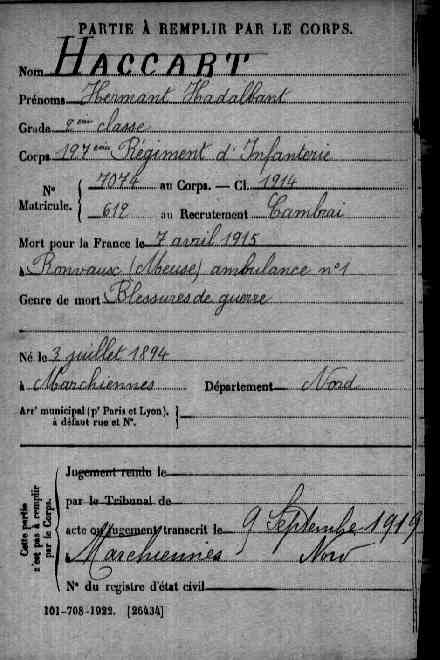 PARTIE À REMPLIR PAR LE CORPS.
Nom HACCART
Prénoms Hermant Hadalbant
Grade 2ème classe
Corps 197ème Régiment d'Infanterie
N° Matricule. { 7074 au Corps. — Cl. 1914
612 au Recrutement Cambrai
Mort pour la France le 7 avril 1915
à Ronvaux (Meuse) ambulance n°1
Genre de mort Blessures de guerre
Né le 3 juillet 1894
à Marchiennes Département Nord
Arrt municipal (pr Paris et Lyon), à défaut rue et N°. }
Cette partie n'est pas à remplir par le Corps.
Jugement rendu le
par le Tribunal de
acte ou jugement transcrit le 9 Septembre 1919
Marchiennes Nord
N° du registre d'état civil
101-708-1922. [26434]